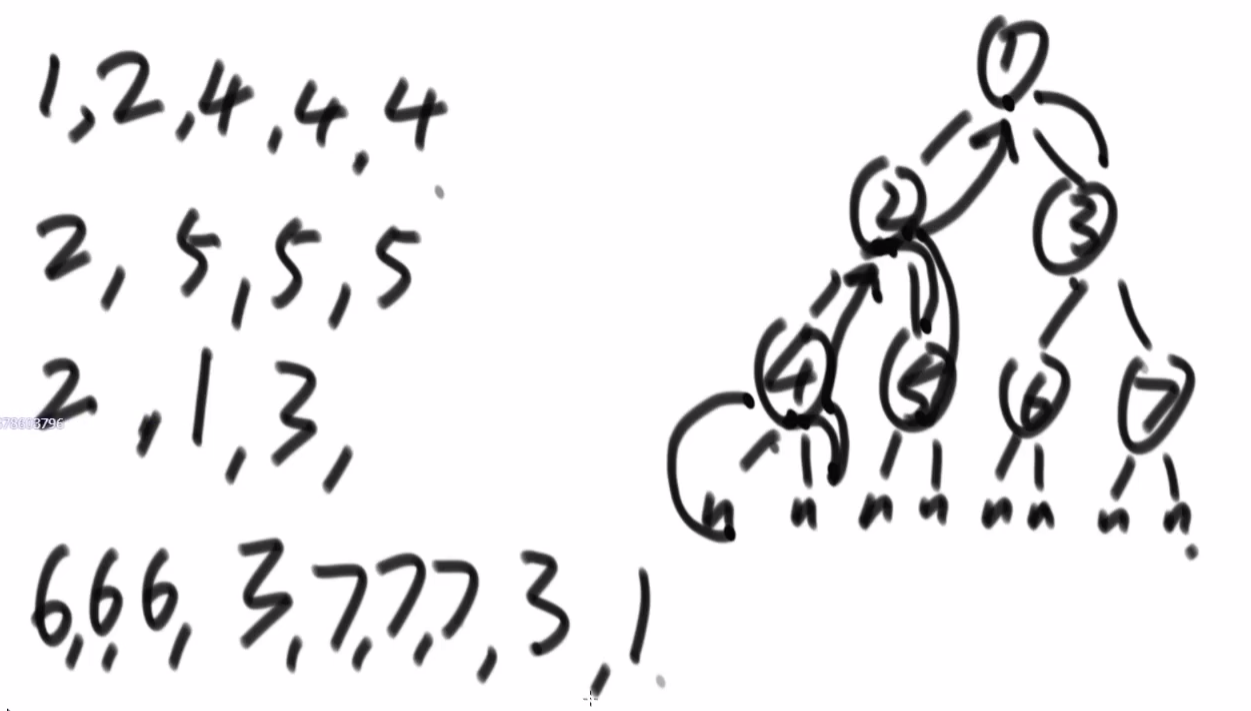 1,2,4,4,4
2,5,5,5
2,1,3,
6,6,6,3,7,7,7,3,1
1
2 3
4 5 6 7
n n n n n n n n